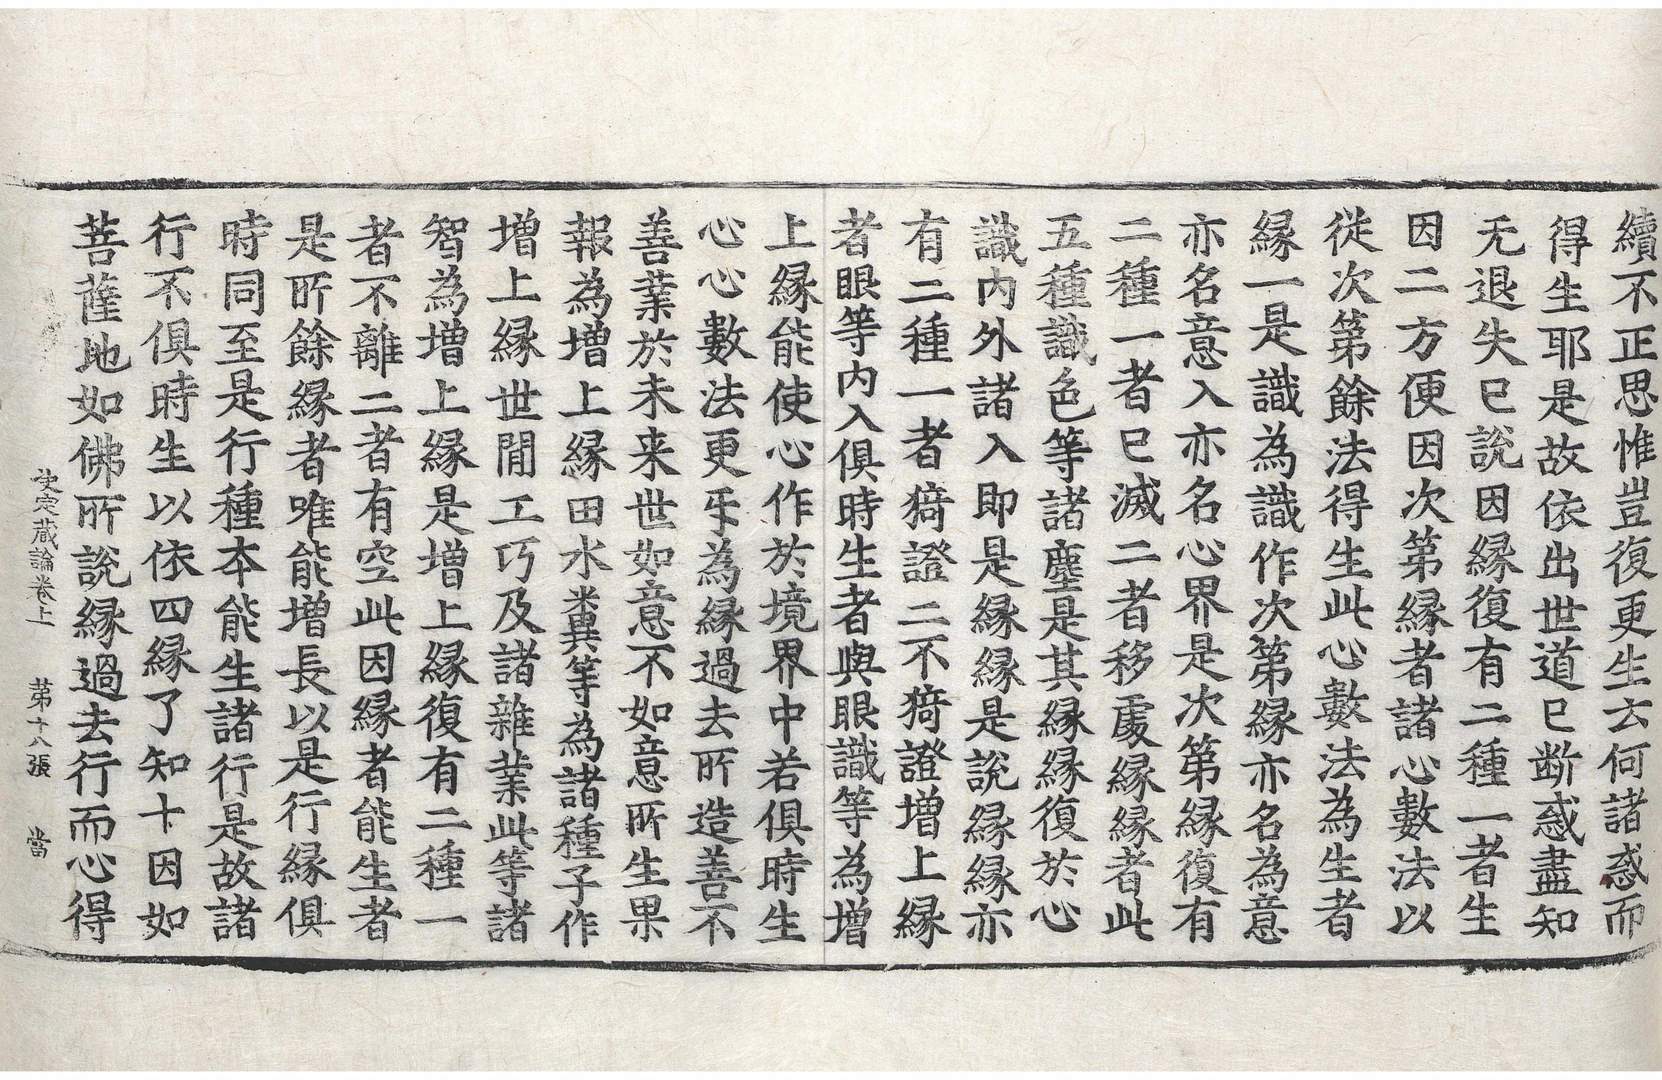 續不正思惟豈復更生云何諸惑而
得生耶是故依出世道已斷惑盡知
无退失已說因緣復有二種一者生
因二方便因次第緣者諸心數法以
從次第餘法得生此心數法為生者
緣一是識為識作次第緣亦名為意
亦名意入亦名心界是次第緣復有
二種一者已滅二者移處緣緣者此
五種識色等諸塵是其緣緣復於心
識內外諸入即是緣緣是說緣緣亦
有二種一者猗證二不猗證增上緣
者眼等內入俱時生者與眼識等為增
上緣能使心作於境界中若俱時生
心心數法更乎為緣過去所造善不
善業於未来世如意不如意所生果
報為增上緣田水糞等為諸種子作
增上緣世間工巧及諸雜業此等諸
智為增上緣是增上緣復有二種一
者不離二者有空此因緣者能生者
是所餘緣者唯能增長以是行緣俱
時同至是行種本能生諸行是故諸
行不俱時生以依四緣了知十因如
菩薩地如佛所說緣過去行而心得
決定藏論卷上 第十八張 當